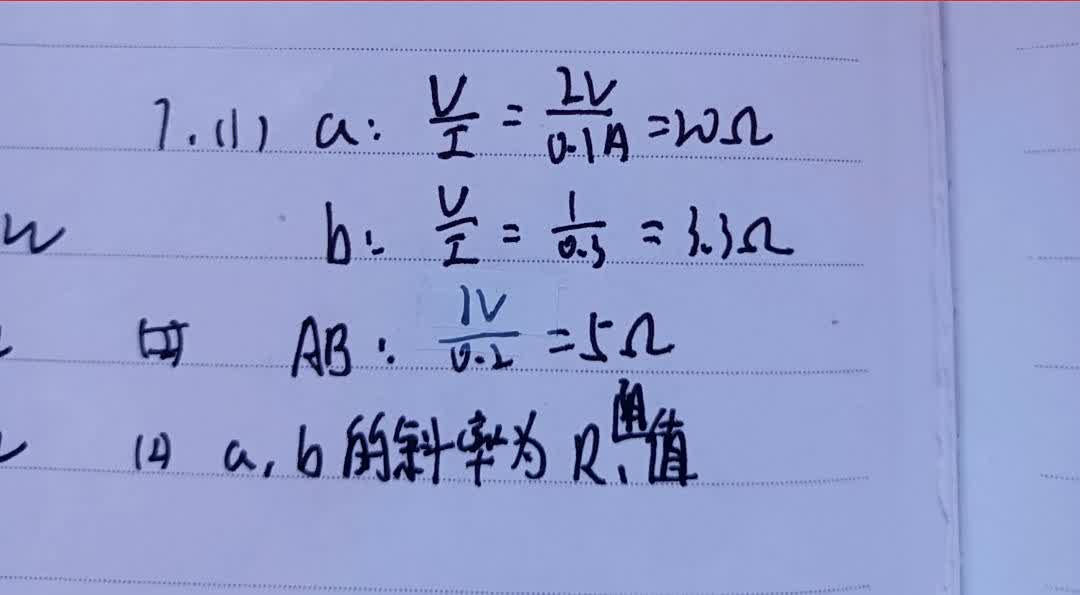 7.(1) a: V/I = 2V/0.1A = 20Ω
b: V/I = 1/0.3 = 3.3Ω
AB: 1V/0.2 = 5Ω
(2) a, b 的斜率为 R、阻值